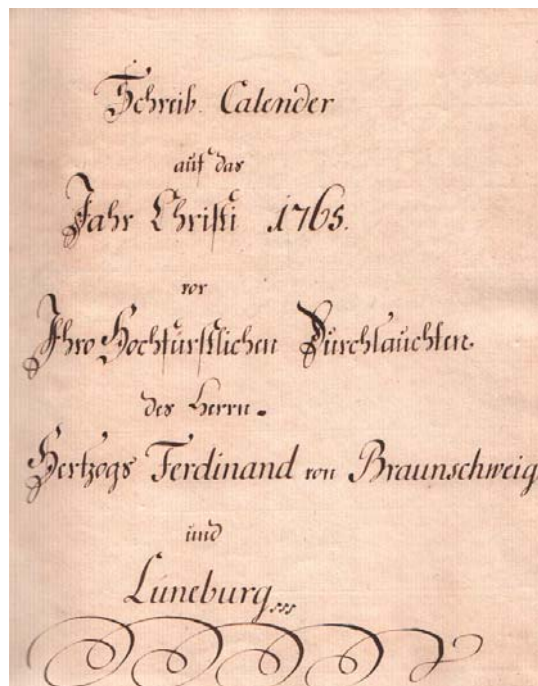 Schreib. Calender
auf das
Jahr Christi 1765.
vor
Ihro Hochfürstlichen Dürchlauchten.
des Herrn.
Hertzogs Ferdinand von Braunschweig
und
Lüneburg